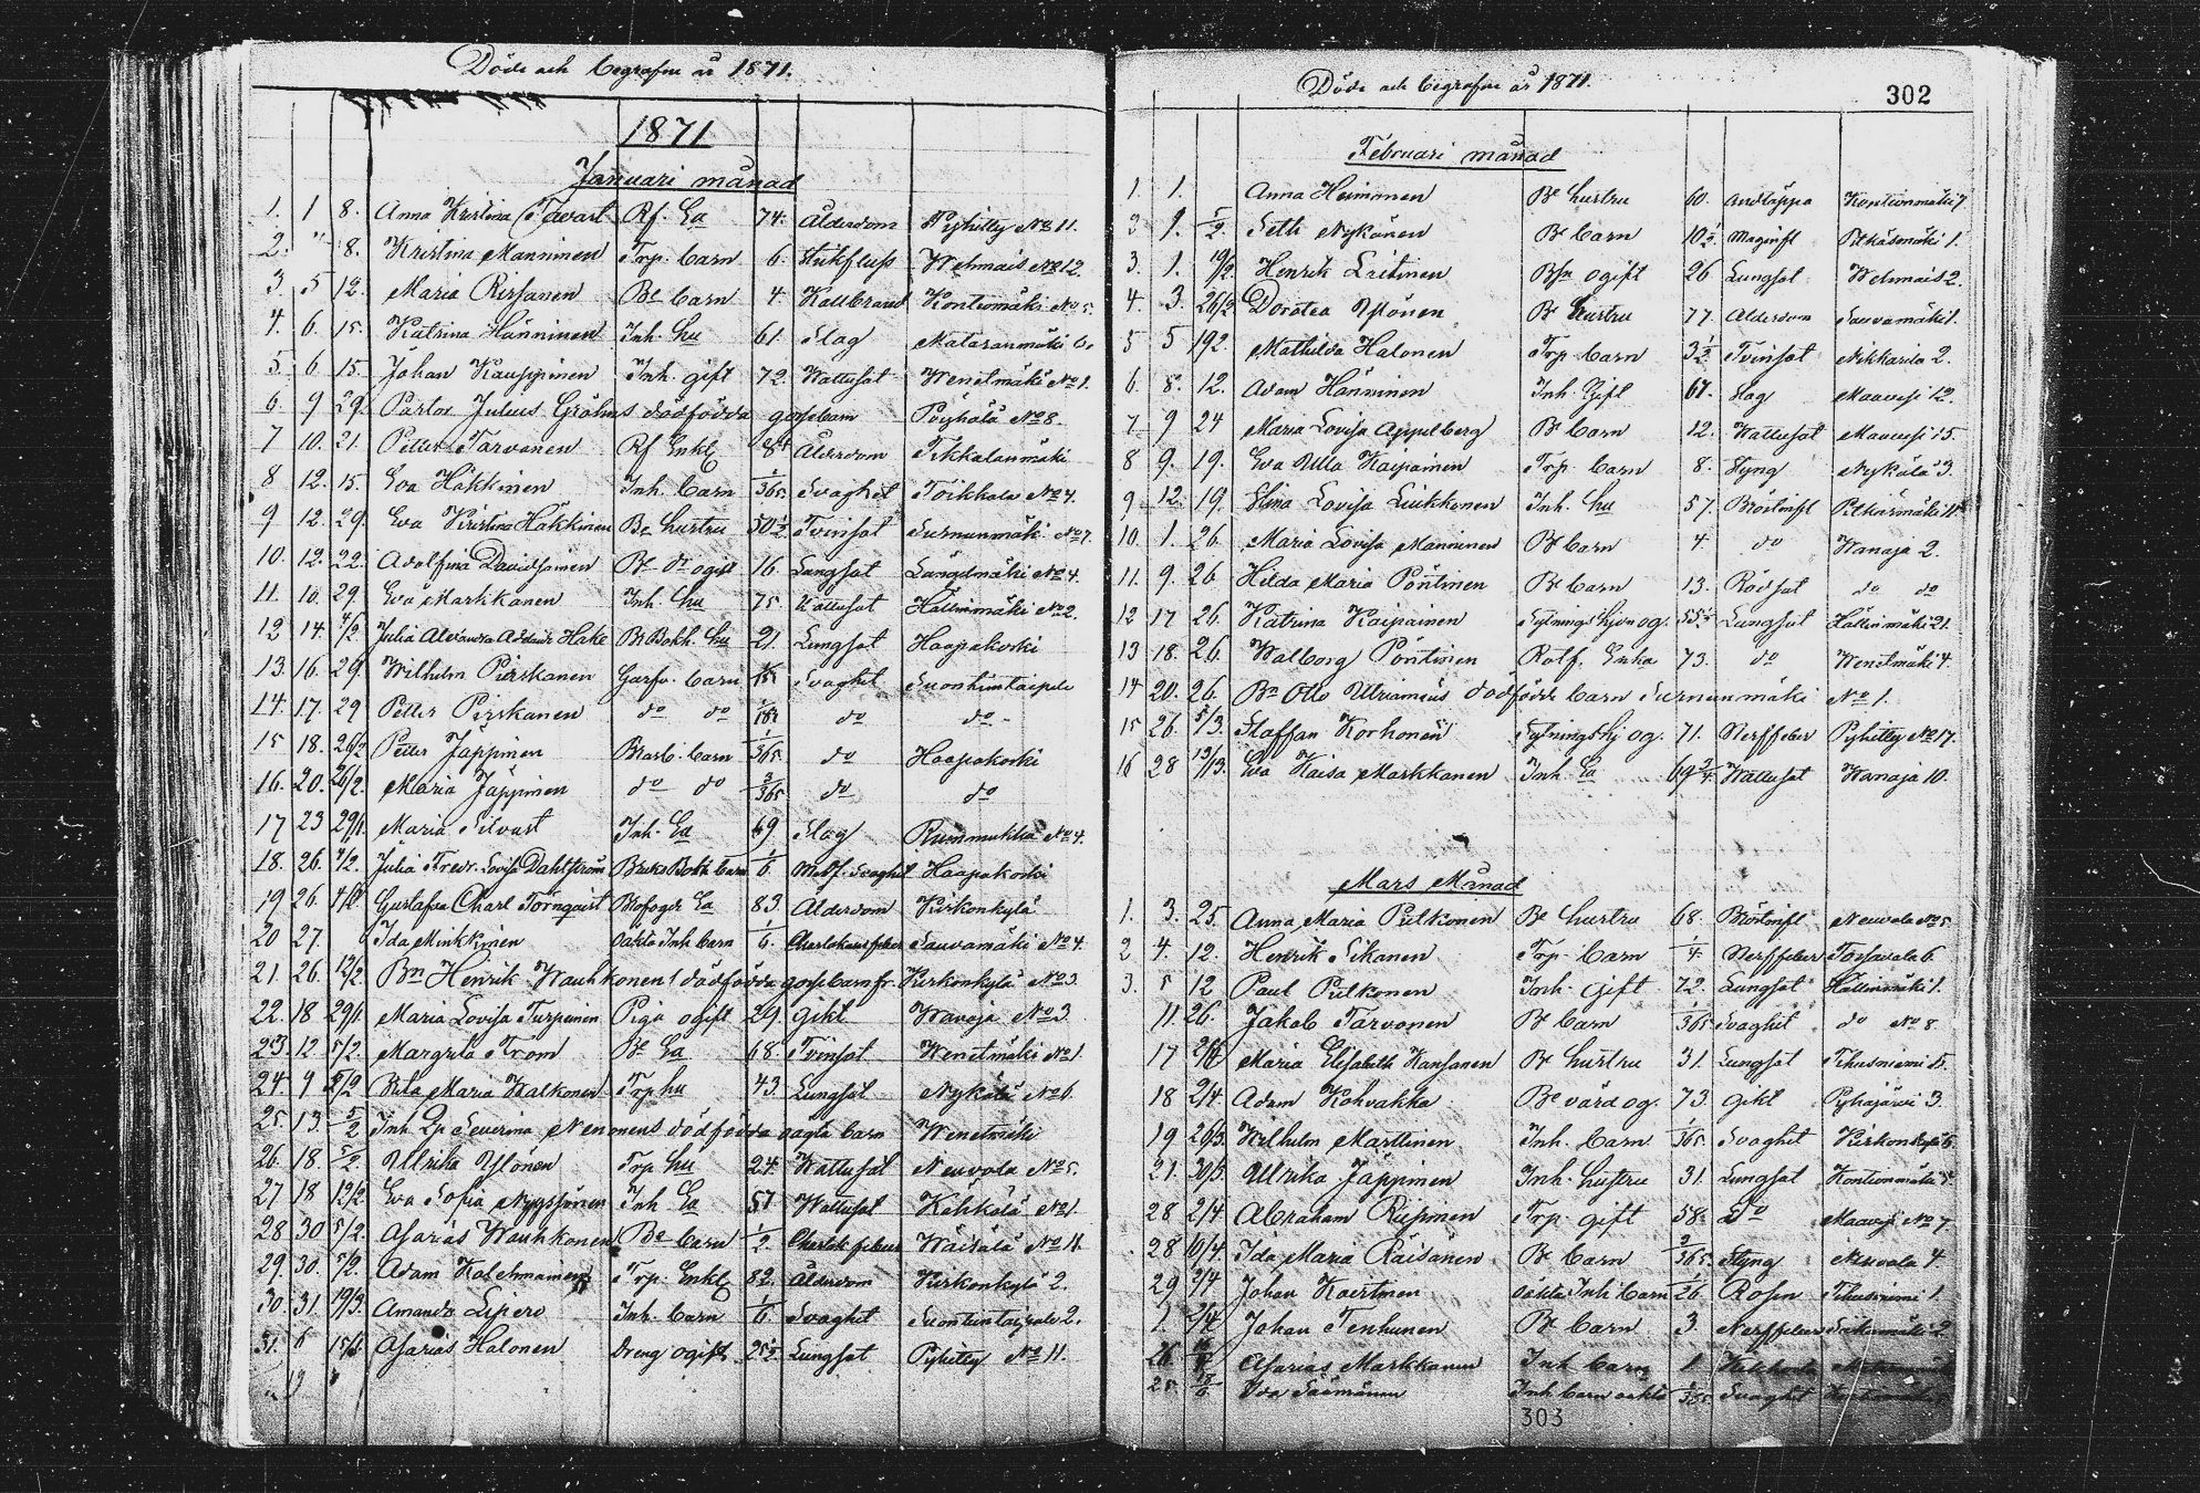 Döde och begrafne år 1871.
1871
Januari månad
1. 1 8. Anna Kristina Tavast Rf. Ea 74. Ålderdom Pyhitty No 11.
2. " 8. Kristina Manninen Trp. barn 6. Stickfluss Wehmais No 12.
3. 5 12. Maria Rissanen Be barn 4. Kallbrand Kontiomäki No 5.
4. 6. 15. Katrina Hänninen Inh. hu 61. Slag Mataranmäki 6.
5 6 15 Johan Kauppinen Inh. gift 72. Wattusot Wenetmäki No 1.
6. 9 29. Pastor Julius Gröhns dödfödda gossebarn Pöyhölä No 8.
7 10. 21. Petter Tarvonen Rf Enkl 84 Ålderdom Tikkalanmäki
8 12. 15. Eva Häkkinen Inh. barn 1/365 Svaghet Töikkala No 4.
9 12. 29. Eva Kristina Häkkinen Be hustru 50 1/2 Tvinsot Surnunmäki No 7.
10. 12. 22. Adolfina Davidsainen Be dr ogift 16. Lungsot No 4.
11. 10. 29 Eva Markkanen Inh. hu 75 Wattusot Hällinmäki No 2.
12 14. 4/2 Julia Alexandra Hake Br Bokh. hu 21. Lungsot Haapakoski
13. 16. 29. Wilhelm Pirskanen barn Svaghet Suontientaipale
14. 17. 29 Petter Pirskanen do do do do
15 18. 26/2 Petter Jäppinen barn 1/365 do Haapakoski
16. 20. 26/2. Maria Jäppinen do do 3/365 do do
17 23 29/1. Maria Silvast Inh. Ea 69 Slag Rummukka No 4.
18. 26. 4/2. Julia Fredr. Lovisa Dahlström Bruks Bokh. barn 1/6. Medf. Svaghet Haapakoski
19 26. Gustafva Charl Törnqvist Ea 83 Ålderdom Kirkonkylä
20 27. Ida Minkkinen oäkta Inh barn 1/6. Sauvamäki No 4.
21. 26. 12/2. Bn Henrik Wauhkonens dödfödda gossebarn fr. Kirkonkylä No 3.
22. 18 29/1. Maria Lovisa Turpeinen Piga ogift 29. Gikt Wanaja No 3
23. 12. 5/2. Margreta Trom Be Ea 68. Tvinsot Wenetmäki No 1.
24. 9 5/2 Rita Maria Walkonen Trp hu 43. Lungsot Nykälä No 6.
25. 13. 5/2 Inh Severina Nenonens dödfödda oägta barn Wenetmäki
26. 18. 5/2. Ullrika Ylönen Trp hu 24. Wattusot Neuvola No 5.
27 18 12/2. Eva Sofia Nyyssönen Inh Ea 57 Wattusot Kähkölä No 1
28 30 5/2. Asarias Wauhkonen Be barn 1/2. Charlak feber Wäisälä No 11.
29. 30. 5/2. Adam Kolehmainen Trp. Enkl 82. Ålderdom Kirkonkylä 2.
30. 31. 19/3. Amanda Lipero Inh. barn 1/6. Svaghet Suontientaipale 2.
31. 6 Asarias Halonen Dreng ogift 25 1/2 Lungsot Pyhitty No 11.
Döde och begrafne år 1871.
302
Februari månad
1. 1. Anna Heinonen Be hustru 60. Andtäppa Kontiomäki 7
3 1. 5/2. Seth Nykänen Be barn 10 1/2. Maginfl Pitkäsmäki 1.
3. 1. 19/2. Henrik Laitinen Bsn ogift 26 Lungsot Wehmais 2.
4. 3. 26/2. Dorotea Ylönen Be hustru 77. Ålderdom Sauvamäki 1.
5 5 19/2. Mathilda Halonen Trp barn 3 1/2 Tvinsot Nikkarila 2.
6. 8. 12. Adam Hänninen Inh. Gift 67. Slag Maavesi 12.
7 9 24 Maria Lovisa Appelberg Be barn 12. Wattusot Maavesi 15.
8 9. 19. Eva Ulla Kaipainen Trp barn 8. Styng Nykälä 3.
9 12. 19. Stina Lovisa Liukkonen Inh. hu 57. Bröstinfl Pitkäsmäki
10. 1. 26. Maria Lovisa Manninen Be barn 4. do Wanaja 2.
11. 9. 26 Hilda Maria Pöntinen Be barn 13. Rödsot do do
12 17 26. Katrina Kaipainen Sytningshjon og. 55 1/2 Lungsot Hällinmäki 21.
13 18. 26. Walborg Pöntinen Rotf. Enka 73. do Wenetmäki 4.
14 20. 26. Bn Otto Ullriainens dödfödda barn Surnunmäki No 1.
15 26. 5/3. Staffan Korhonen Sytningshj og. 71. Nerffeber Pyhitty No 17.
16 28 Eva Kaisa Markkanen Inh. Ea 69 3/4. Wattusot Wanaja 10.
Mars Månad
1. 3. 25. Anna Maria Pulkonen Be hustru 68. Bröstinfl Neuvola No 5.
2 4. 12. Henrik Sikanen Trp. barn 1/4. Nerffeber Torsavala 6.
3. 5 12 Paul Pulkonen Inh. Gift 72. Lungsot Hällinmäki 1.
11. 26. Jakob Tarvonen Be barn 1/365 Svaghet do No 8
17 2/4 Maria Elisabeth Hansanen Be hustru 31. Lungsot Tihusniemi
18 2/4. Adam Kohvakka Be värd og. 73. Gikt Pyhäjärvi 3.
19 26/3. Wilhelm Marttinen Inh. barn 1/365. Svaghet Kirkonkylä
21. 30/3. Ullrika Jäppinen Inh. hustru 31. Lungsot Kontiomäki
28 2/4. Abraham Riipinen Trp. gift 58. Do Maavesi No 7
28 10/4. Ida Maria Räisänen Be barn 2/365. Styng Neuvola 4.
29 2/4 Johan Koistinen oäkta Inh barn 1/26 Rosen Tihusniemi 1.
1. 2/4 Johan Tenhunen Be barn 3. Nerffeber
26 Asarias Markkanen Inh barn 1
25. Ida Säämänen Inh barn oäkta 1/365. Svaghet
303